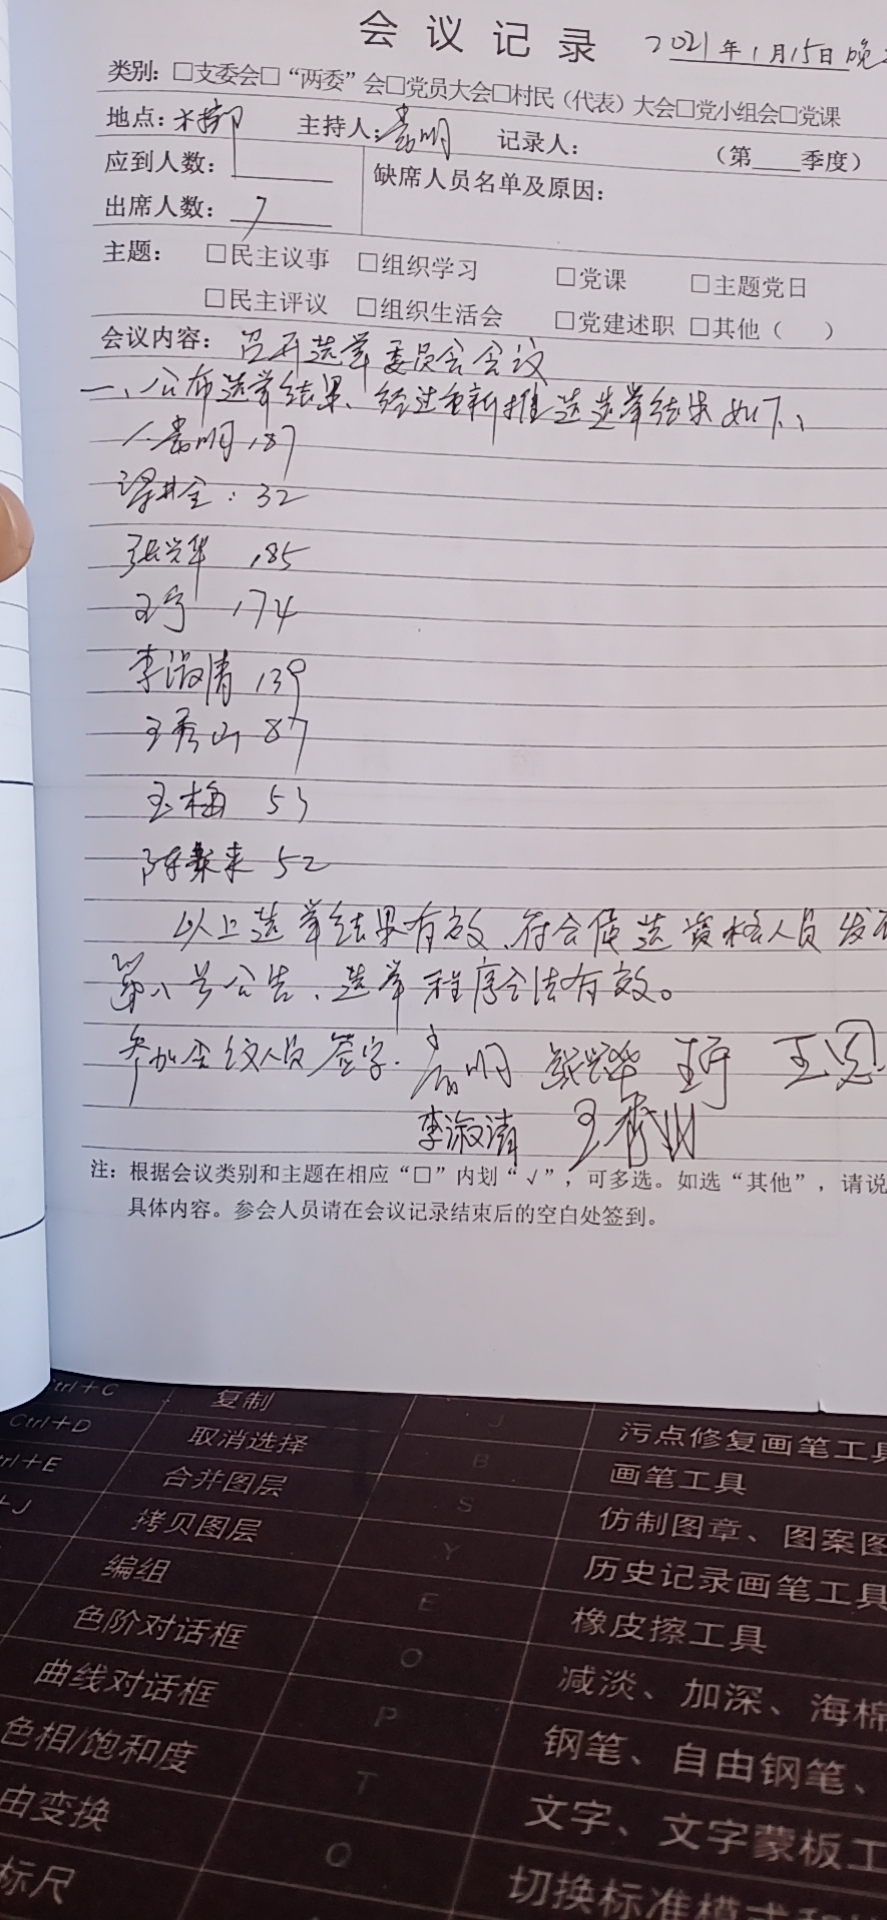 会议记录 2021年1月15日晚
类别：□支委会□“两委”会□党员大会□村民（代表）大会□党小组会□党课
地点：村部 主持人： 记录人： （第 季度）
应到人数： 缺席人员名单及原因：
出席人数：7
主题： □民主议事 □组织学习 □党课 □主题党日
□民主评议 □组织生活会 □党建述职 □其他（ ）
会议内容：召开选举委员会会议
一、公布选举结果、经过重新推选选举结果如下、
明187
全：32
张兴华 185
王宇 174
李淑清 139
王秀山 87
王梅 53
陈 来 52
以上选举结果有效、符合候选资格人员发布
第八号公告、选举程序合法有效。
参加会议人员签字. 明 张兴华 王宇 王恩
李淑清 王秀山
注：根据会议类别和主题在相应“□”内划“√”，可多选。如选“其他”，请说
具体内容。参会人员请在会议记录结束后的空白处签到。
Ctrl+C 复制 J 污点修复画笔工具
Ctrl+D 取消选择 B 画笔工具
trl+E 合并图层 S 仿制图章、图案图
+J 拷贝图层 Y 历史记录画笔工具
编组 E 橡皮擦工具
色阶对话框 O 减淡、加深、海棉
曲线对话框 P 钢笔、自由钢笔、
色相/饱和度 T 文字、文字蒙板工
由变换 Q 切换标准模式和
标尺